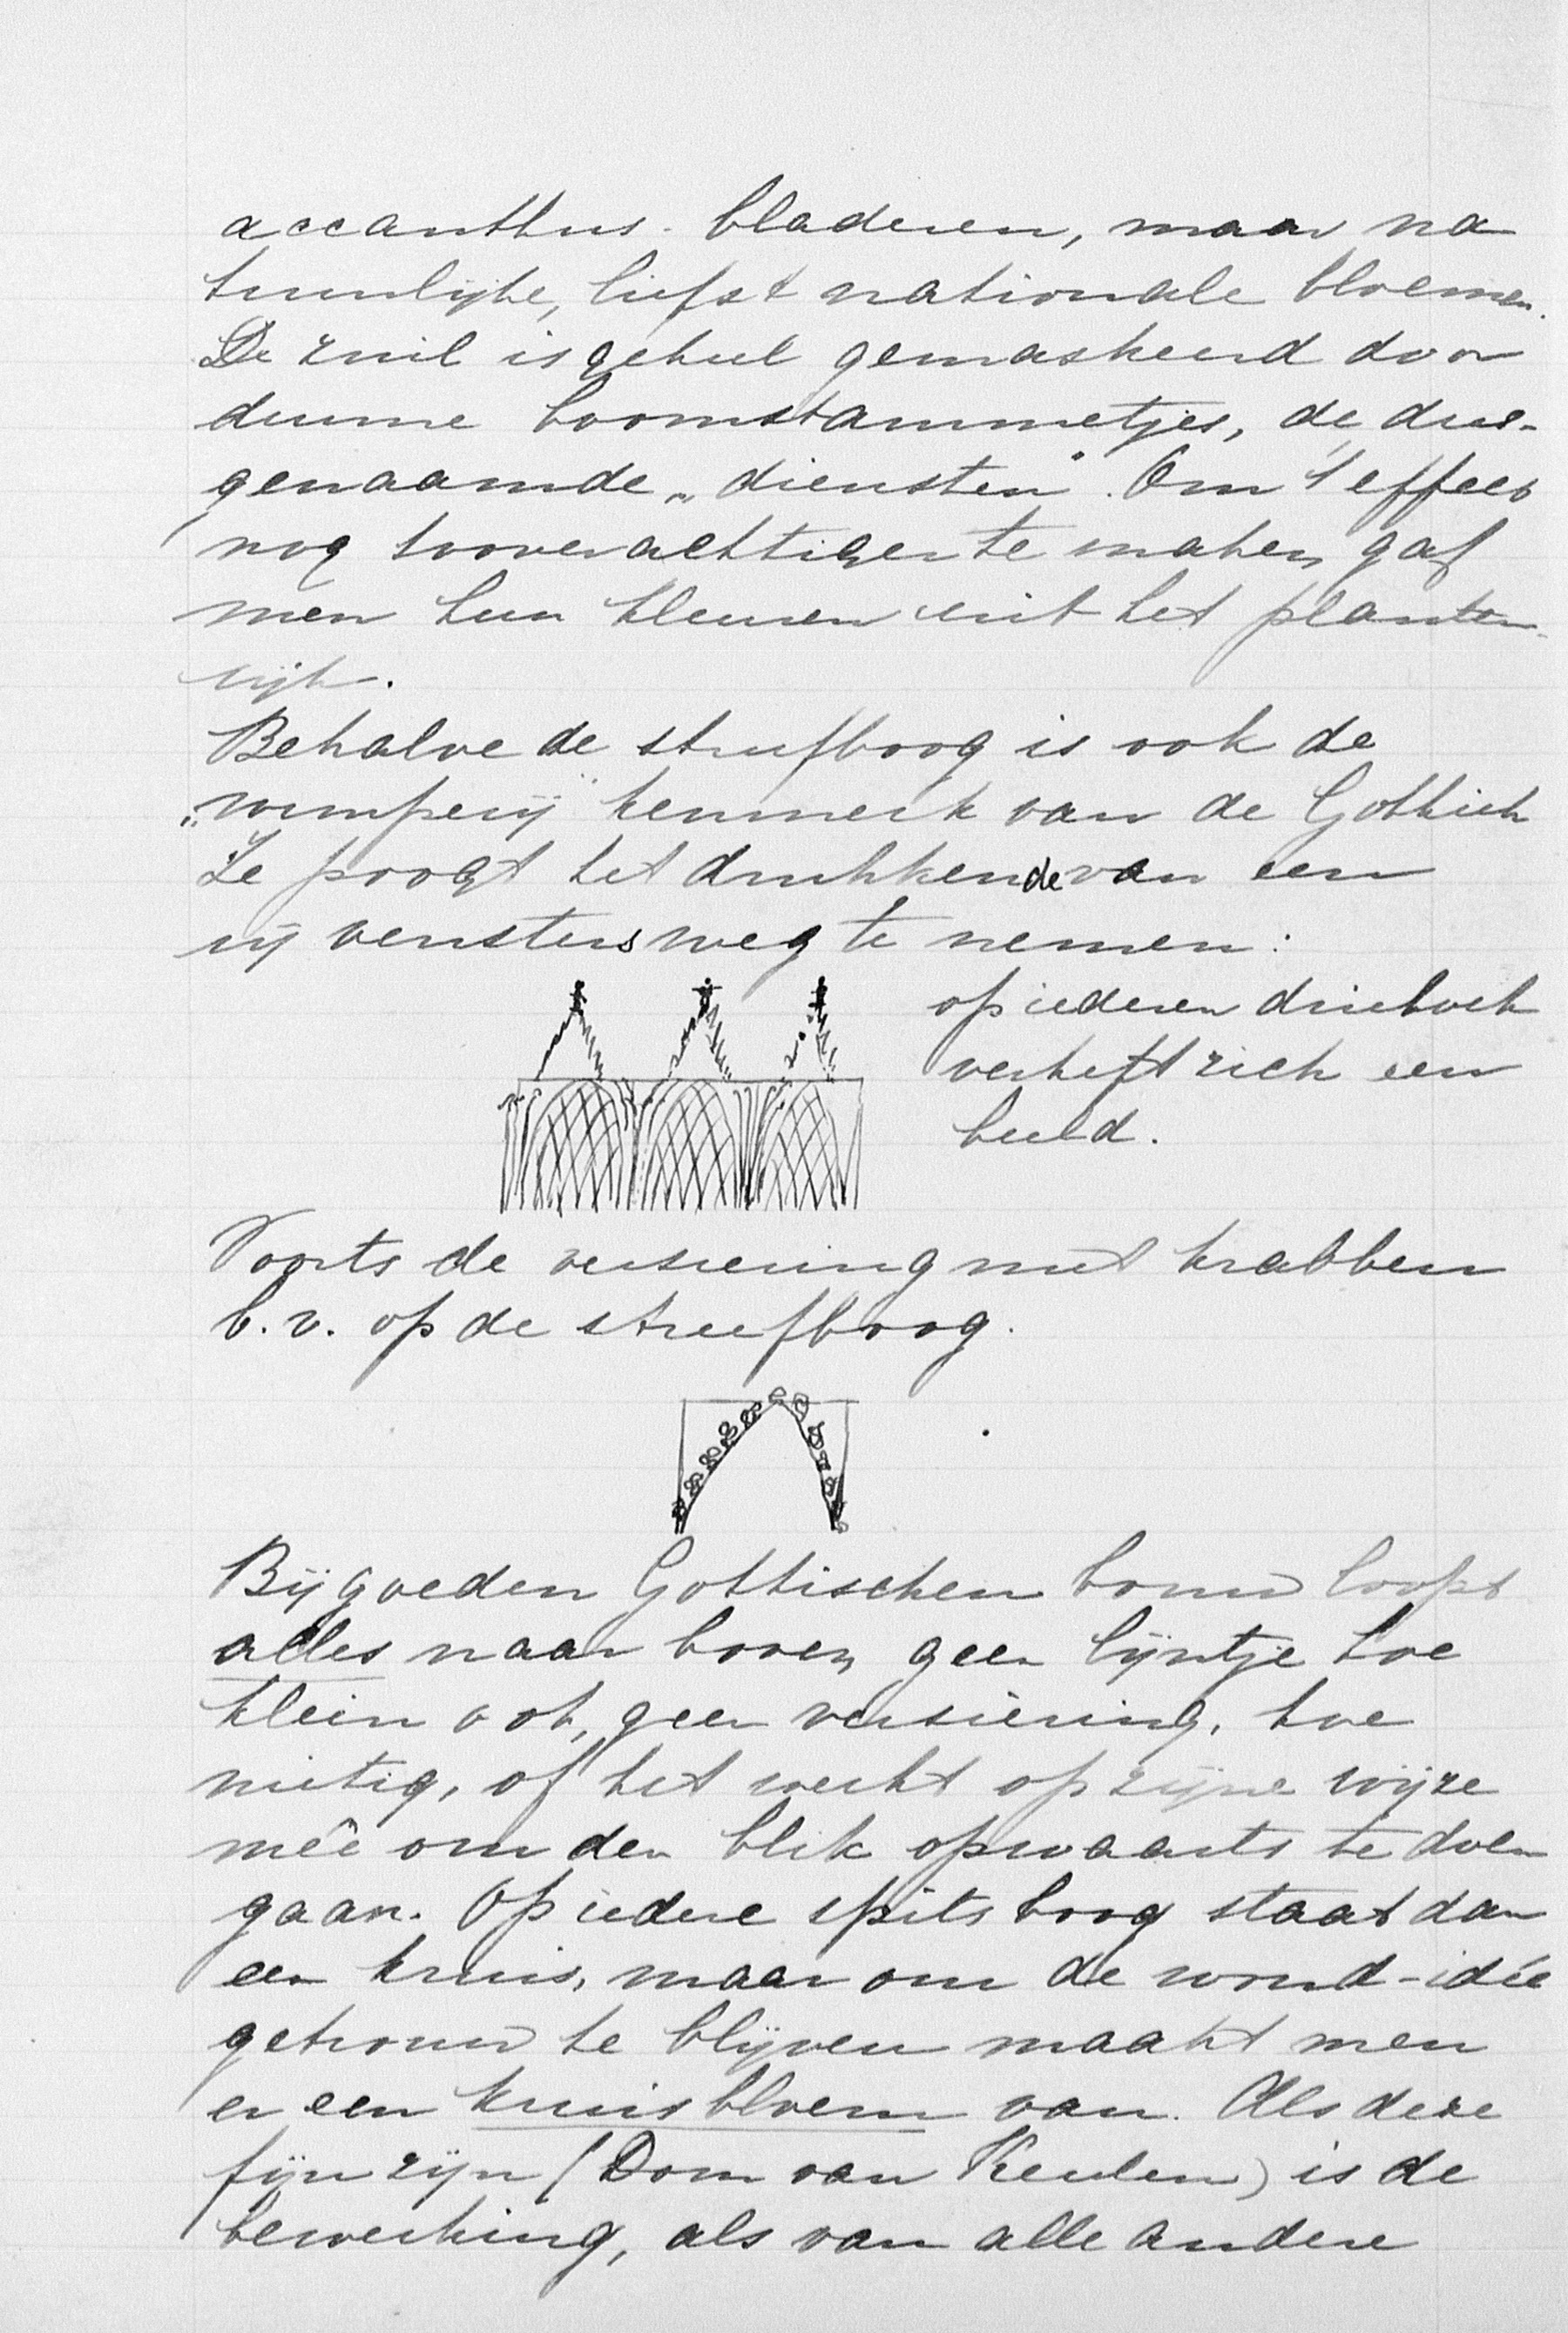 accanthus-bladeren, maar na
tuurlijke, liefst nationale bloemen.
De zuil is geheel gemaskeerd door
dunne boomstammetjes, de dus-
genaamde „diensten". Om 't effect
nog tooverachtiger te maken gaf
men hun kleuren uit het planten-
rijk.
Behalve de streefboog is ook de
„wimperij" kenmerk van de Gothiek
Ze poogt het drukkende van een
rij vensters weg te nemen:
op iederen driehoek
verheft zich een
beeld.
Voorts de versiering met krabben
b.v. op de streefboog.
Bij goeden Gothischen bouw loopt
alles naar boven, geen lijntje hoe
klein ook, geen versiering, hoe
nietig, of het werkt op zijne wijze
mêe om den blik opwaarts te doen
gaan. Op iedere spitsboog staat dan
een kruis, maar om de woud-idée
getrouw te blijven maakt men
er een kruisbloem van. Als deze
fijn zijn (Dom van Keulen) is de
bewerking, als van alle andere